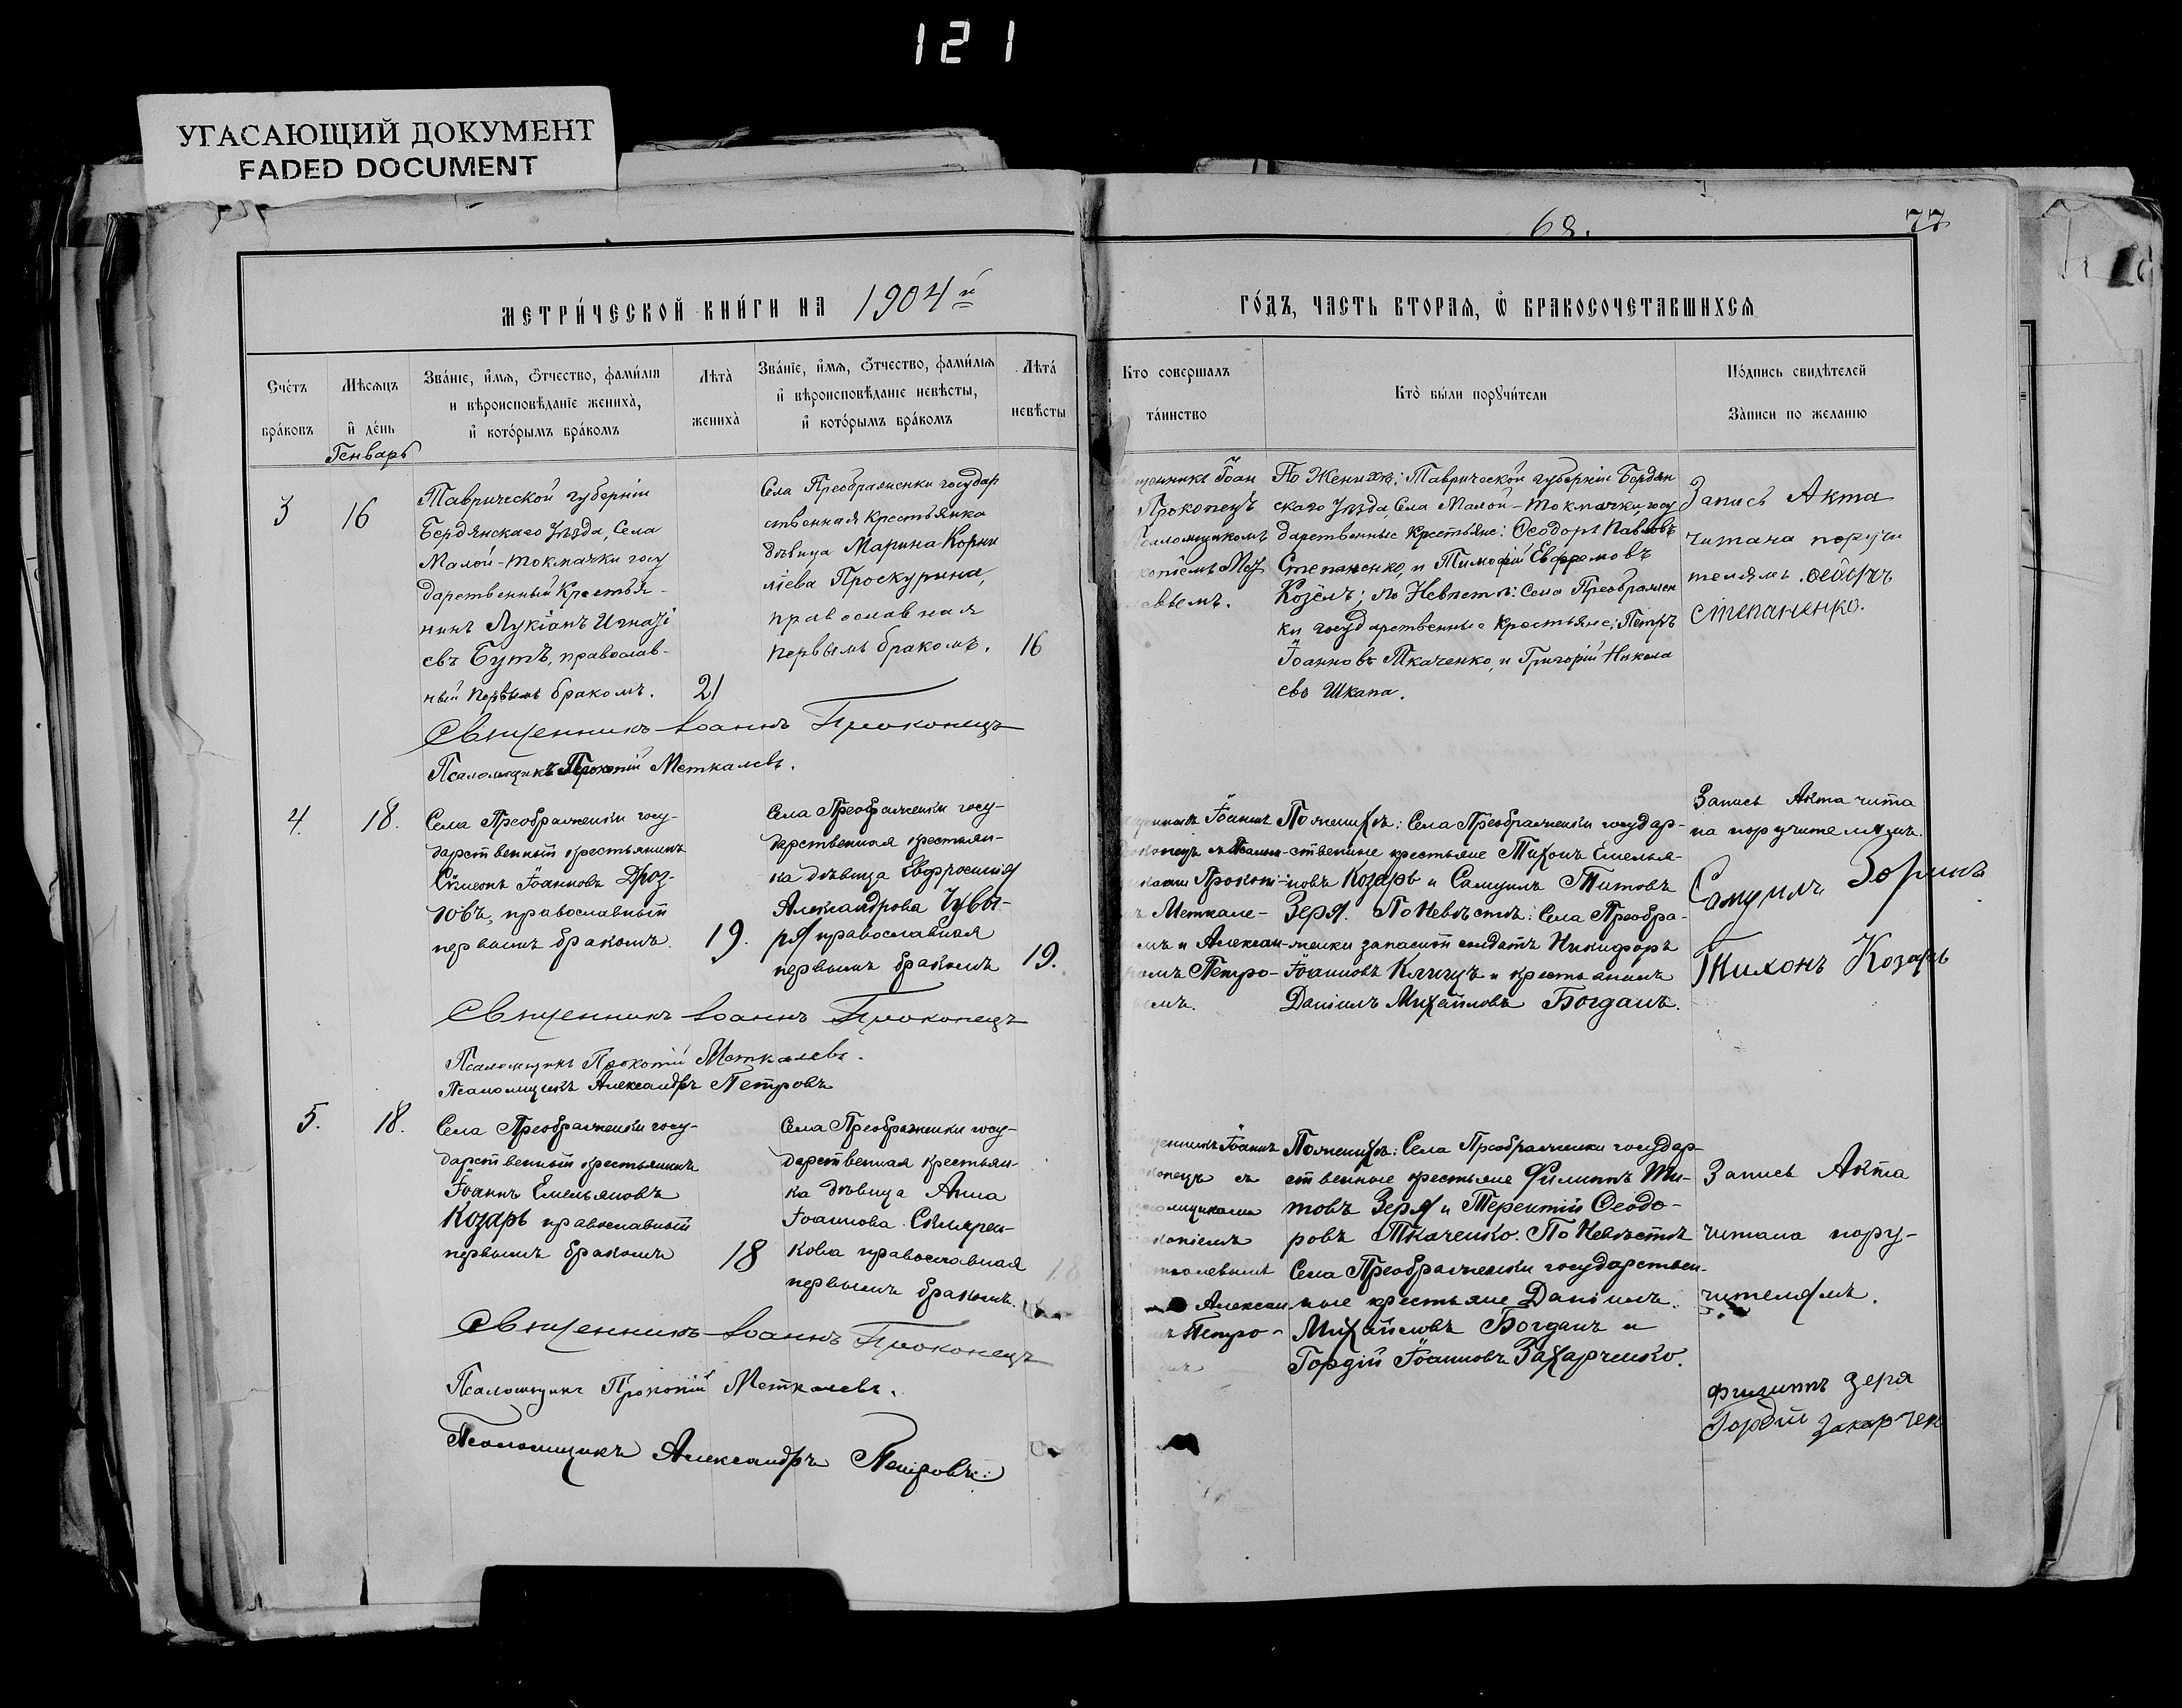 121
УГАСАЮЩИЙ ДОКУМЕНТ
FADED DOCUMENT
68.
77
МЕТРИ́ЧЕСКОЙ КНИ́ГИ НА 1904й
ГО́ДЪ, ЧАСТЬ ВТОРАЯ, Ѡ БРАКОСОЧЕТАВШИХСЯ
Сче́тъ
бра́ковъ
Мѣсяцъ
и де́нь
Генварь
Зва́нїе, и́мя, О́тчество, фами́лїя
и вѣроисповѣданїе жениха̀,
и кото́рымъ бра́комъ
Лѣта̀
жениха̀
Зва́нїе, и́мя, О́тчество, фами́лїя
и вѣроисповѣданїе невѣсты,
и кото́рымъ бра́комъ
Лѣта́
невѣсты
Кто совершалъ
та́инство
Кто̀ были пору́чители
По́дпись свидѣтелей
За́писи по желанїю
3
16
Таврической губерніи
Бердянскаго Уѣзда, Села
Малой-Токмачки госу
дарственный Крестья-
нинъ Лукіанъ Игнаті
евъ Бутъ, православ-
ный первымъ бракомъ.
21
Села Преображенки государ
ственная Крестьянка
дѣвица Марина Корни
ліева Проскурина,
православная
первымъ бракомъ.
16
щенникъ Іоан
Прокопецъ
саломщикомъ
копіемъ Мет
евымъ.
По Женихѣ: Таврической губерніи Бердян
скаго Уѣзда Села Малой-Токмачки, госу
дарственные Крестьяне: Ѳеодоръ Павловъ
Степаненко, и Тимофій Евфремовъ
Козелъ; по Невѣстѣ: Села Преображен
ки государственные Крестьяне: Петръ
Іоанновъ Ткаченко, и Григорій Никола
евъ Шкапа.
Запись Акта
читана поручи
телямъ. Ѳеодоръ
Степаненко.
Священникъ Іоаннъ Прокопецъ
Псаломщикъ Прокопій Меткалевъ.
4.
18.
Села Преображенки госу-
дарственный крестьянинъ
Симеонъ Іоанновъ Дроз-
довъ, православный
первымъ бракомъ.
19.
Села Преображенки госу-
дарственная крестьян-
ка дѣвица Евфросинія
Александрова Чувы-
ря православная
первымъ бракомъ
19.
щенникъ Іоаннъ
копецъ съ Псалом-
иками Прокопі-
Меткале-
мъ и Алексан-
омъ Петро-
ымъ.
По женихѣ: Села Преображенки государ-
ственные крестьяне Тихонъ Емелья-
новъ Козарь и Самуилъ Титовъ
Зеря. По Невѣстѣ: Села Преобра-
женки запасной солдатъ Никифоръ
Іоанновъ Клигуъ и крестьянинъ
Даніилъ Михайловъ Богданъ.
Запись Акта чита
на поручителямъ.
Самуилъ
Тихонъ Козарь
Священникъ Іоаннъ Прокопецъ
Псаломщикъ Прокопій Меткалевъ.
Псаломщикъ Александръ Петровъ
5.
18.
Села Преображенки госу-
дарственный крестьянинъ
Іоаннъ Емельяновъ
Козарь православный
первымъ бракомъ
18
Села Преображенки госу-
дарственная крестьян-
ка дѣвица Анна
Іоаннова Скляren-
кова православная
первымъ бракомъ.
18
щенникъ Іоаннъ
копецъ съ
омщиками
копіемъ
калевымъ
Алексан
Петро-
По женихѣ: Села Преображенки государ-
ственные крестьяне Филиппъ Ти-
товъ Зеря и Терентій Ѳеодо-
ровъ Ткаченко. По Невѣстѣ
Села Преображенки государствен-
ные крестьяне Даніилъ
Михайловъ Богданъ и
Гордій Іоанновъ Захарченко.
Запись Акта
читана пору-
чителямъ.
Филиппъ Зеря
Гордій Захарчен
Священникъ Іоаннъ Прокопецъ
Псаломщикъ Прокопій Меткалевъ.
Псаломщикъ Александръ Петровъ